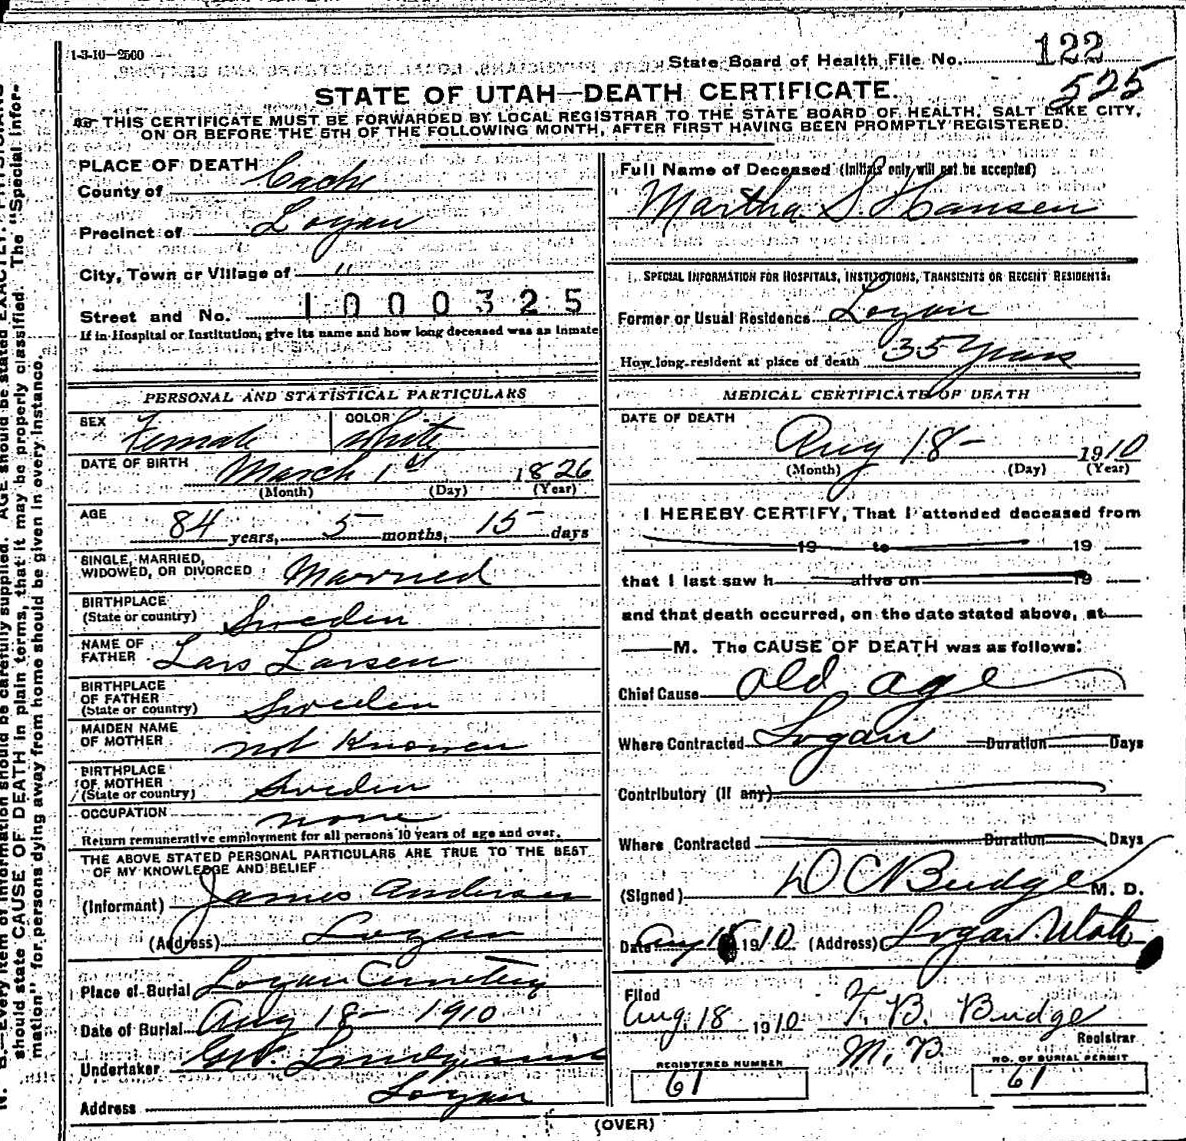 1-3-10—2500
State Board of Health File No. 122
525
STATE OF UTAH—DEATH CERTIFICATE.
THIS CERTIFICATE MUST BE FORWARDED BY LOCAL REGISTRAR TO THE STATE BOARD OF HEALTH, SALT LAKE CITY,
ON OR BEFORE THE 5TH OF THE FOLLOWING MONTH, AFTER FIRST HAVING BEEN PROMPTLY REGISTERED.
PLACE OF DEATH
County of Cache
Precinct of Logan
City, Town or Village of "
Street and No. 1000325
If in Hospital or Institution, give its name and how long deceased was an Inmate
PERSONAL AND STATISTICAL PARTICULARS
SEX Female
COLOR White
DATE OF BIRTH March 1st 1826
(Month) (Day) (Year)
AGE 84 years, 5 months, 15 days
SINGLE, MARRIED,
WIDOWED, OR DIVORCED Married
BIRTHPLACE
(State or country) Sweden
NAME OF
FATHER Lars Larsen
BIRTHPLACE
OF FATHER
(State or country) Sweden
MAIDEN NAME
OF MOTHER not Known
BIRTHPLACE
OF MOTHER
(State or country) Sweden
OCCUPATION none
Return remunerative employment for all persons 10 years of age and over.
THE ABOVE STATED PERSONAL PARTICULARS ARE TRUE TO THE BEST
OF MY KNOWLEDGE AND BELIEF
(Informant) James Anderson
(Address) Logan
Place of Burial Logan Cemetery
Date of Burial Aug 18- 1910
Undertaker
Address Logan
Full Name of Deceased (Initials only will not be accepted)
Martha S. Hansen
SPECIAL INFORMATION FOR HOSPITALS, INSTITUTIONS, TRANSIENTS OR RECENT RESIDENTS.
Former or Usual Residence Logan
How long resident at place of death 35 Years
MEDICAL CERTIFICATE OF DEATH
DATE OF DEATH
Aug 18- 1910
(Month) (Day) (Year)
I HEREBY CERTIFY, That I attended deceased from
19 to 19
that I last saw h alive on 19
and that death occurred, on the date stated above, at
M. The CAUSE OF DEATH was as follows:
Chief Cause old age
Where Contracted Logan Duration Days
Contributory (If any)
Where Contracted Duration Days
(Signed) D C Budge M. D.
Date Aug 18 1910 (Address) Logan Utah
Filed
Aug. 18 1910 T. B. Budge
Registrar
REGISTERED NUMBER
61
NO. OF BURIAL PERMIT
61
(OVER)
should state CAUSE OF DEATH in plain terms, that it may be properly classified. The "Special Infor-
mation" for persons dying away from home should be given in every instance.